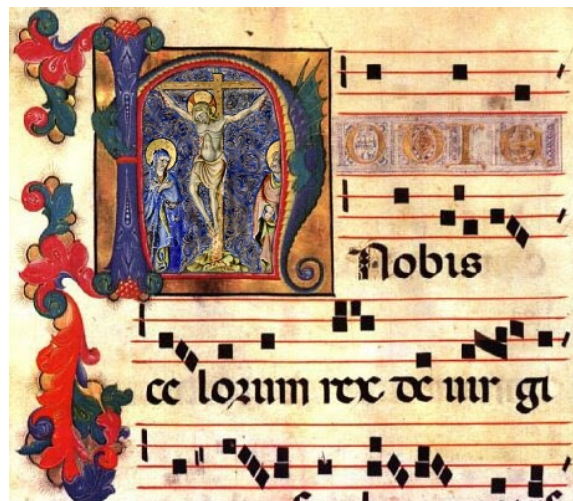 Hodie
Nobis
ce lorum rex de uir gi